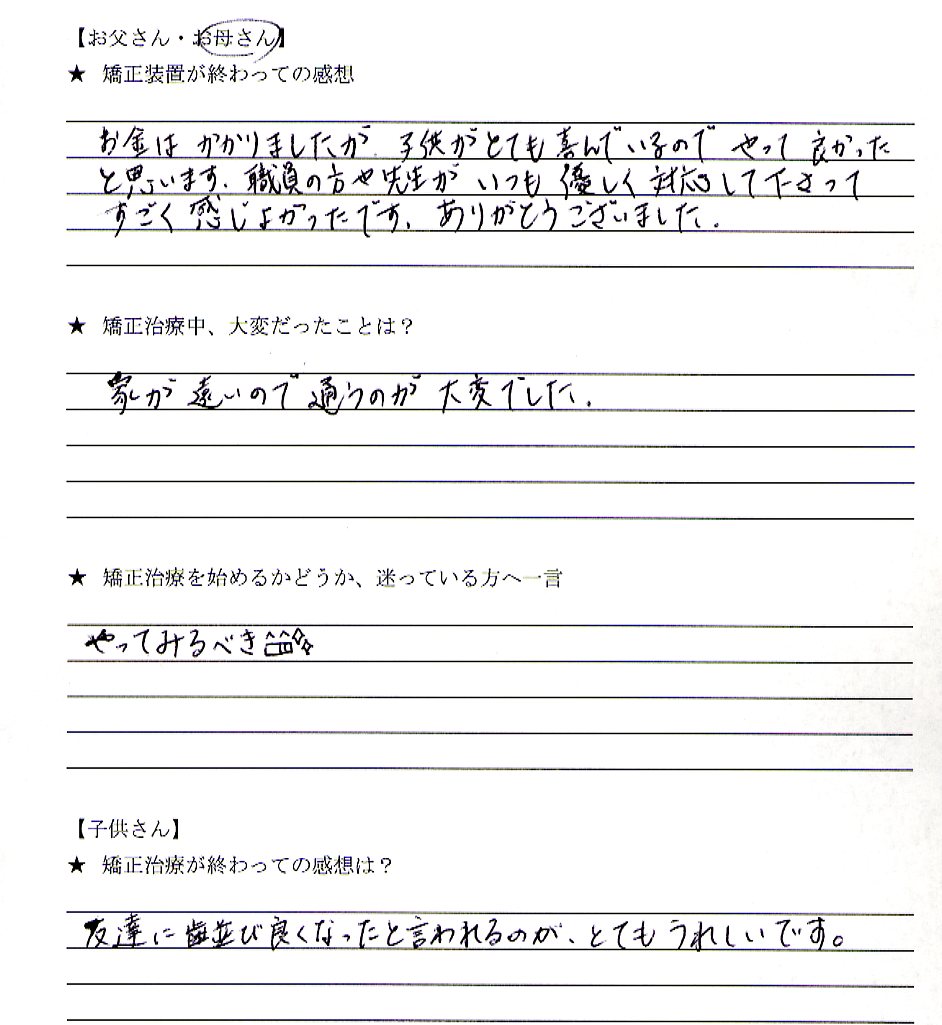 【お父さん・お母さん】
★ 矯正装置が終わっての感想
お金は かかりましたが 子供がとても喜んでいるので やって 良かった
と思います. 職員の方や先生が いつも 優しく 対応して下さって
すごく 感じよかったです. ありがとうございました.
★ 矯正治療中、大変だったことは？
家が 遠いので 通うのが 大変でした.
★ 矯正治療を始めるかどうか、迷っている方へ一言
やってみるべき
【子供さん】
★ 矯正治療が終わっての感想は？
友達に 歯並び良くなったと言われるのが、とてもうれしいです。